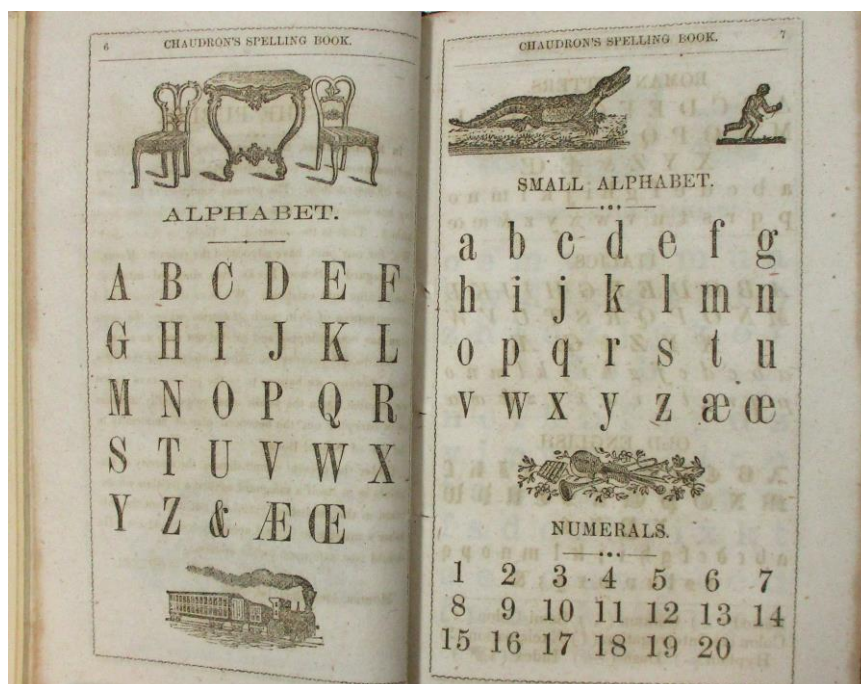 6 CHAUDRON'S SPELLING BOOK.
ALPHABET.
A B C D E F
G H I J K L
M N O P Q R
S T U V W X
Y Z & Æ Œ
CHAUDRON'S SPELLING BOOK. 7
SMALL ALPHABET.
a b c d e f g
h i j k l m n
o p q r s t u
v w x y z æ œ
NUMERALS.
1 2 3 4 5 6 7
8 9 10 11 12 13 14
15 16 17 18 19 20